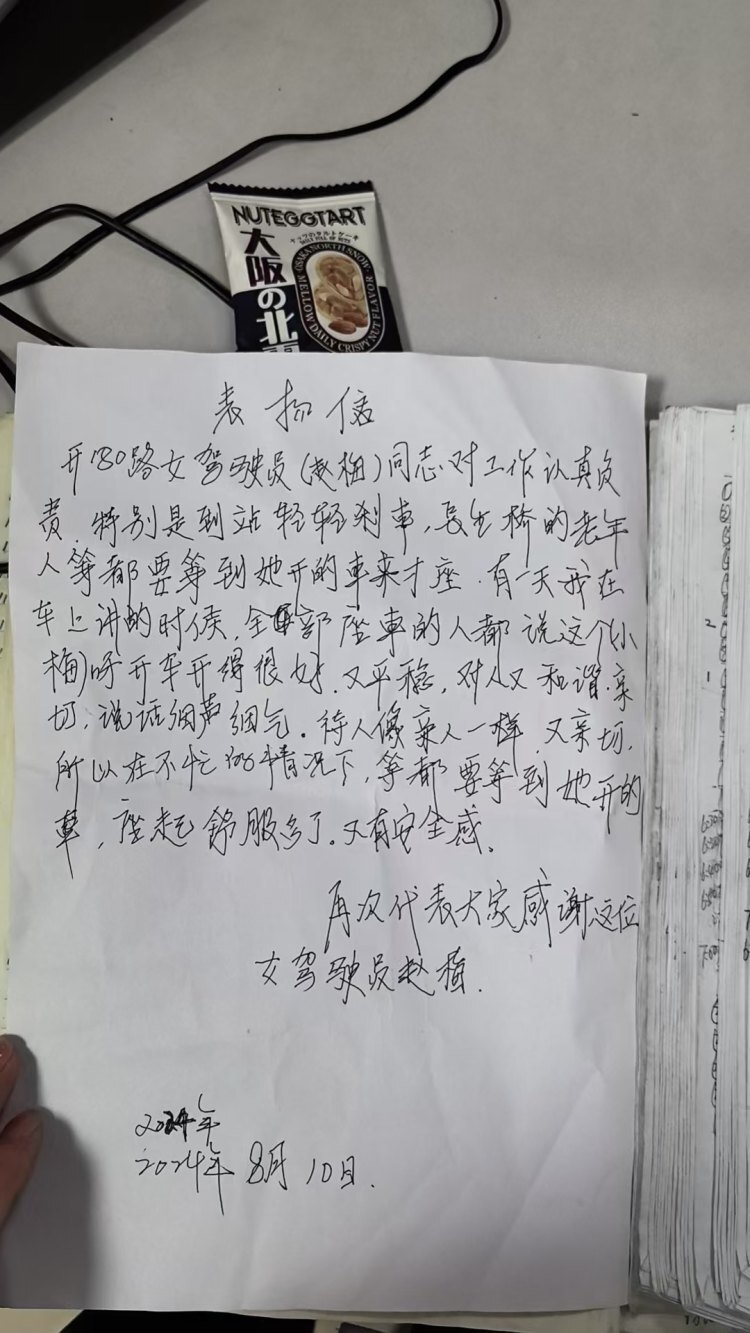 NUTEGGTART
大阪の北
OSAKA NORTH SNOW
MELLOW DAILY CRISPY NUT FLAVOR
表扬信
开130路女驾驶员(赵梅)同志对工作认真负
责，特别是到站轻轻刹車，長生桥的老年
人等都要等到她开的車来才座．有一天我在
车上讲的时侯，全部座車的人都说这个(小
梅)呀开车开得很好，又平稳，对人又和谐．亲
切，说话细声细气．待人像亲人一样，又亲切，
所以在不忙的情况下，等都要等到她开的
車，座起舒服多了．又有安全感．
再次代表大家感谢这位
女驾驶员赵梅．
2024年8月10日．